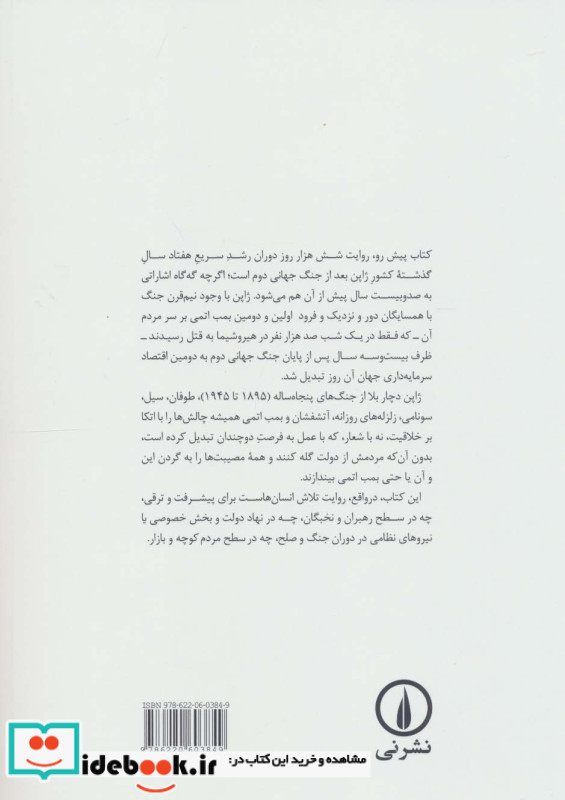 کتاب پیش رو، روایت شش هزار روز دوران رشدِ سریعِ هفتاد سالِ
گذشتهٔ کشورِ ژاپن بعد از جنگ جهانی دوم است؛ اگرچه گه‌گاه اشاراتی
به صدوبیست سال پیش از آن هم می‌شود. ژاپن با وجود نیم‌قرن جنگ
با همسایگان دور و نزدیک و فرود اولین و دومین بمب اتمی بر سر مردم
آن ـ که فقط در یک شب صد هزار نفر در هیروشیما به قتل رسیدند ـ
ظرف بیست‌وسه سال پس از پایان جنگ جهانی دوم به دومین اقتصاد
سرمایه‌داری جهان آن روز تبدیل شد.
ژاپن دچار بلا از جنگ‌های پنجاه‌ساله (۱۸۹۵ تا ۱۹۴۵)، طوفان، سیل،
سونامی، زلزله‌های روزانه، آتشفشان و بمب اتمی همیشه چالش‌ها را با اتکا
بر خلاقیت، نه با شعار، که با عمل به فرصتِ دوچندان تبدیل کرده است،
بدون آن‌که مردمش از دولت گله کنند و همهٔ مصیبت‌ها را به گردن این
و آن یا حتی بمب اتمی بیندازند.
این کتاب، درواقع، روایت تلاش انسان‌هاست برای پیشرفت و ترقی،
چه در سطح رهبران و نخبگان، چه در نهاد دولت و بخش خصوصی یا
نیروهای نظامی در دوران جنگ و صلح، چه در سطح مردم کوچه و بازار.
ISBN 978-622-06-0384-9
9786220603849
نشرنی
مشاهده و خرید این کتاب در:
idebook.ir